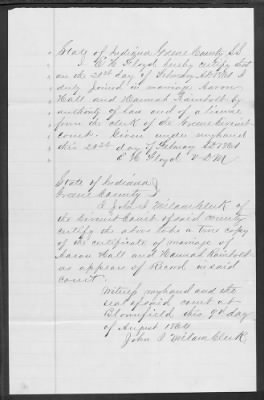 State of Indiana Greene County SS
E W Floyd hereby certify that
on the 20th day of February AD 1861 I
duly joined in marriage Aaron
Hall and Hannah Rambolt by
authority of law and of a license
from the clerk of the Greene Circuit
court. Given under my hand
this 20th day of February AD 1861
E W Floyd V. D. M
State of Indiana
Greene County
I John I Milam clerk of
the Circuit Court of said county
certify the above to be a true copy
of the certificate of marriage of
Aaron Hall and Hannah Rambolt
as appears of Record in said
court.
Witness my hand and the
seal of said court at
Bloomfield this 9th day
of August 1864
John I Milam Clerk